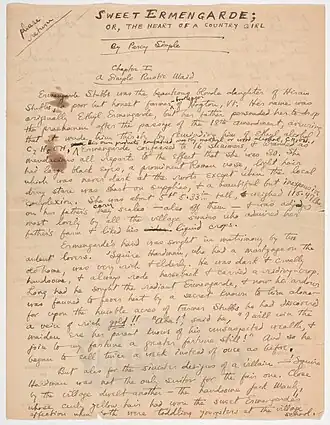 please
return
SWEET ERMENGARDE;
OR, THE HEART OF A COUNTRY GIRL
By Percy Simple
Chapter I.
A Simple Rustic Maid
Ermengarde Stubbs was the beauteous blonde daughter of Hiram
Stubbs, a poor but honest farmer-bootlegger of Hogton, Vt. Her name was
originally Ethyl Ermengarde, but her father persuaded her to drop
the praenomen after the passage of the 18th Amendment, averring
that it made him thirsty by reminding him of ethyl alcohol,
C2H5OH. His own products contained mostly methyl or wood alcohol, CH3OH.
Ermengarde confessed to 16 summers, & branded as
mendacious all reports to the effect that she was 30. She
had large black eyes, a prominent Roman nose, light hair
which was never dark at the roots except when the local
drug store was short on supplies, & a beautiful but inexpensive
complexion. She was about 5ft 5.33 tall, weighed
on her father's
most lovely by all the village swains who admired her
father's farm & liked his liquid crops.
Ermengarde's hand was sought in matrimony by two
ardent lovers. 'Squire Hardman, who had a mortgage on the
old home, was very rich & elderly. He was dark & cruelly
handsome, & always rode horseback & carried a riding-crop.
Long had he sought the radiant Ermengarde, & now his ardour
was fanned to fever heat by a secret known to him alone—
for upon the humble acres of Farmer Stubbs he had discovered
a vein of rich gold!! "Aha!" said he, "I will win the
maiden ere her parent knows of his unsuspected wealth, &
join to my fortune a greater fortune still!" And so he
began to call twice a week instead of once as before.
But alas for the sinister designs of a villain— 'Squire
Hardman was not the only suitor for the fair one. Close
by the village dwelt another— the handsome Jack Manly,
whose curly yellow hair had won the sweet Ermengarde's
affection when both were toddling youngsters at the village
school.